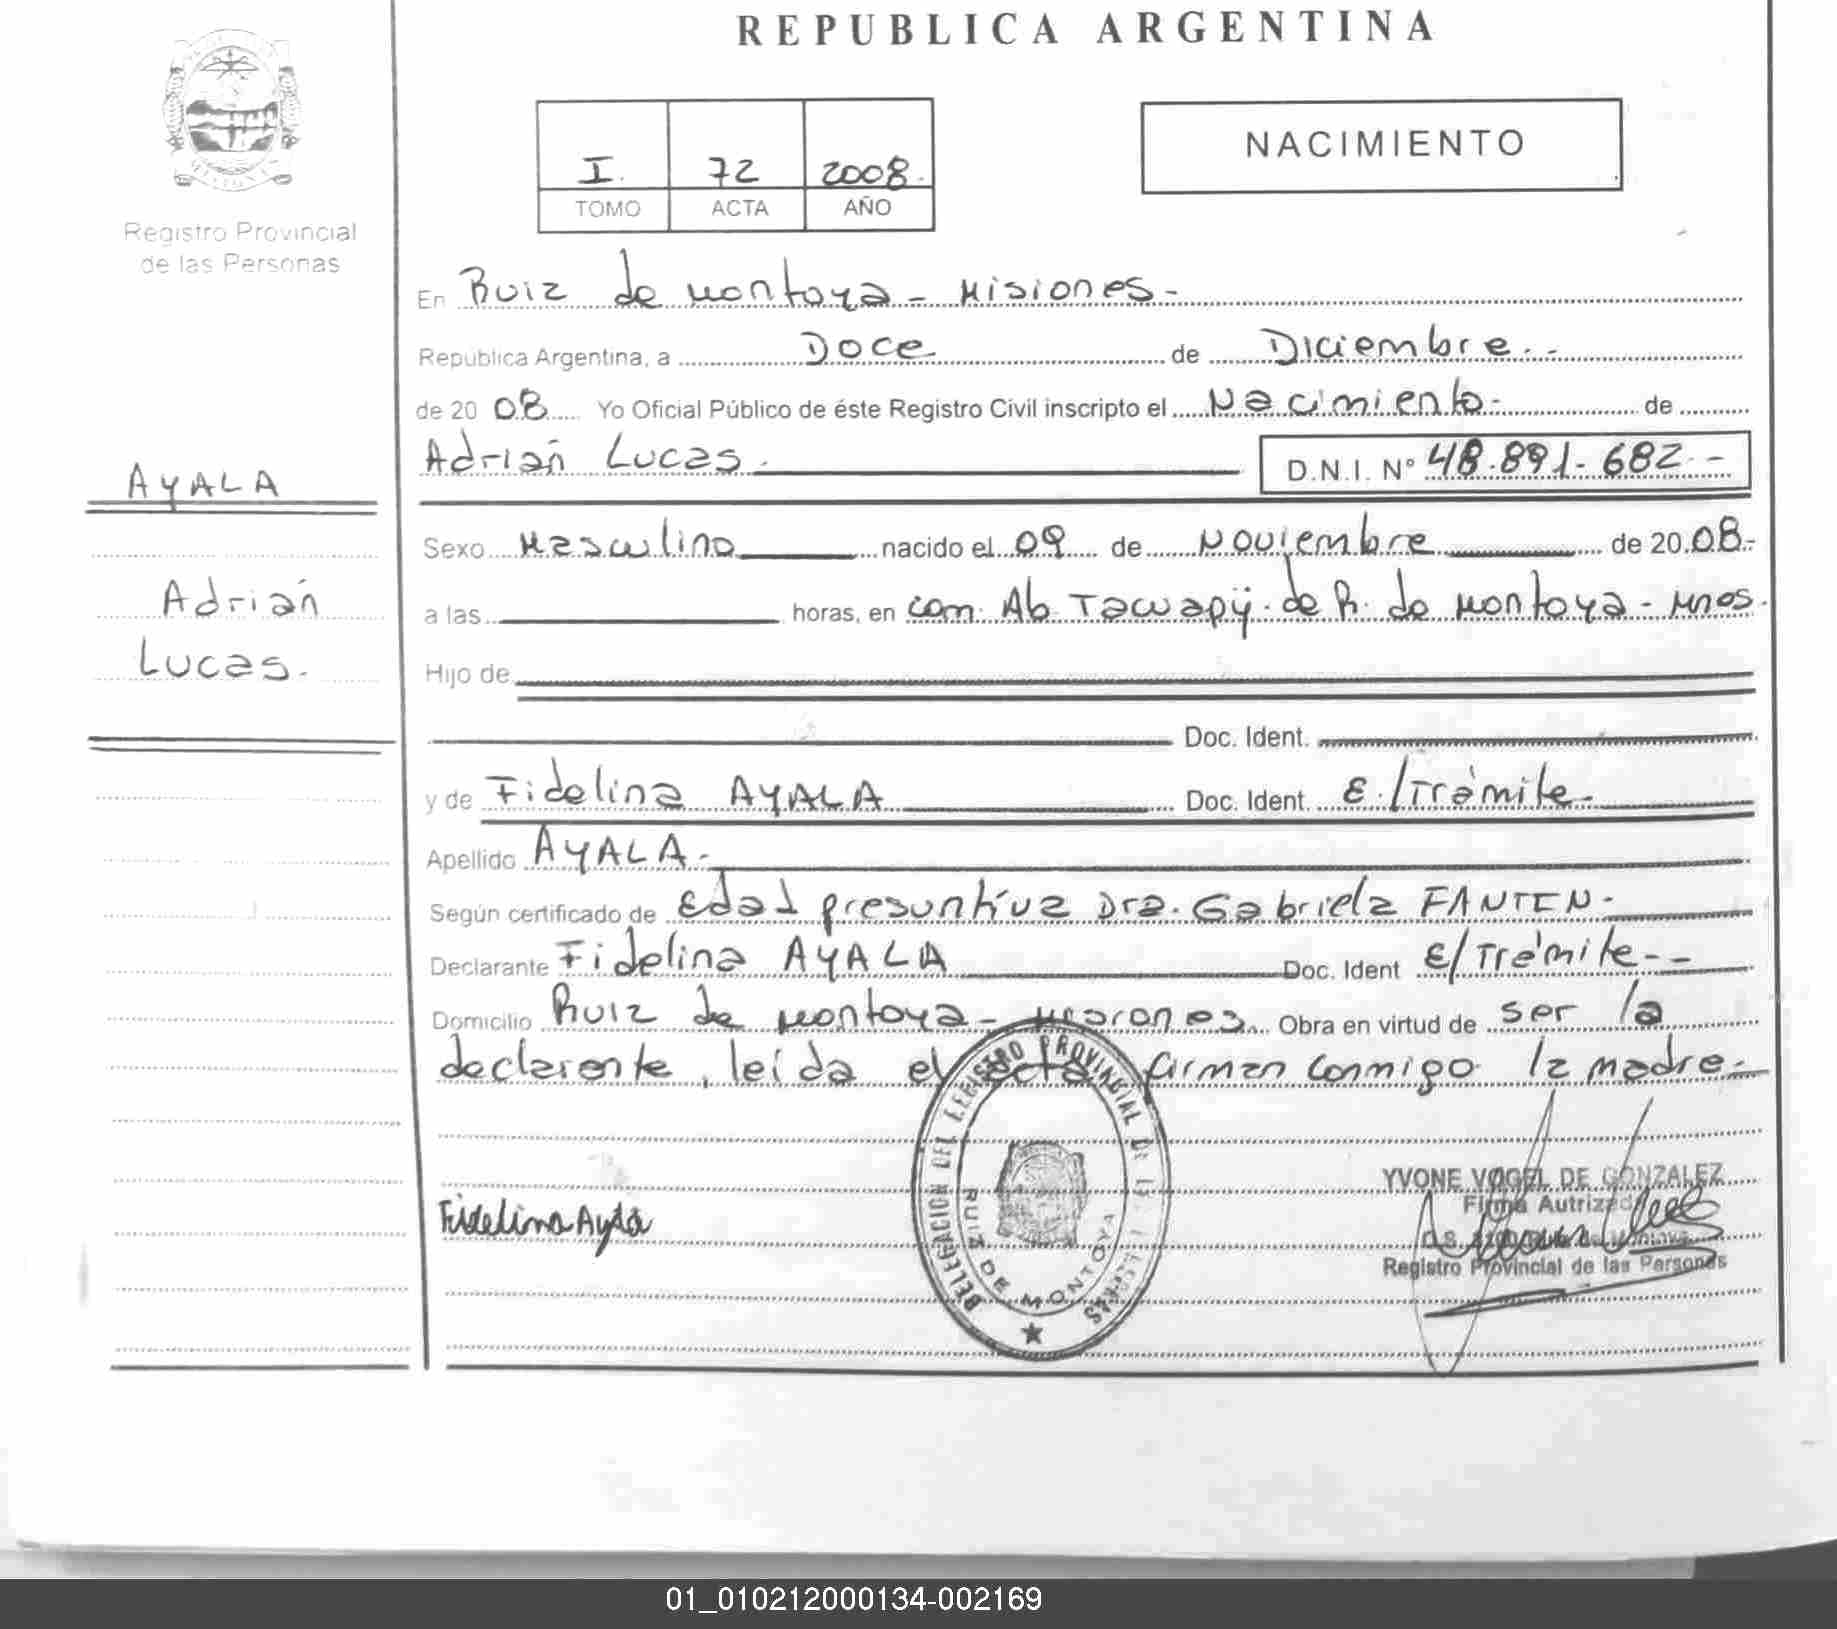 REPUBLICA ARGENTINA
NACIMIENTO
I. 72 2008.
TOMO ACTA AÑO
Registro Provincial
de las Personas
En Ruiz de Montoya - Misiones -
República Argentina, a Doce de Diciembre. -
de 20 08 Yo Oficial Público de éste Registro Civil inscripto el Nacimiento - de
Adrián Lucas. D.N.I. N° 48.891.682 -
AYALA
Adrián
Lucas.
Sexo Masculino nacido el 09 de Noviembre de 20 08.-
a las horas, en com. Ab. Tacuapy. de R. de Montoya - Mnes.
Hijo de
Doc. Ident.
y de Fidelina AYALA Doc. Ident. E./Trámite -
Apellido AYALA -
Según certificado de Edad presuntiva Dra. Gabriela
Declarante Fidelina AYALA Doc. Ident E/Trámite - -
Domicilio Ruiz de Montoya - Misiones Obra en virtud de ser la
declarante, leída el acta firman conmigo la madre -
Fidelina Ayala
DELEGACION DEL REGISTRO PROVINCIAL DE LAS PERSONAS
RUIZ DE MONTOYA
YVONE VOGEL DE GONZALEZ
Firma Autrizad
Registro Provincial de las Personas
01_010212000134-002169